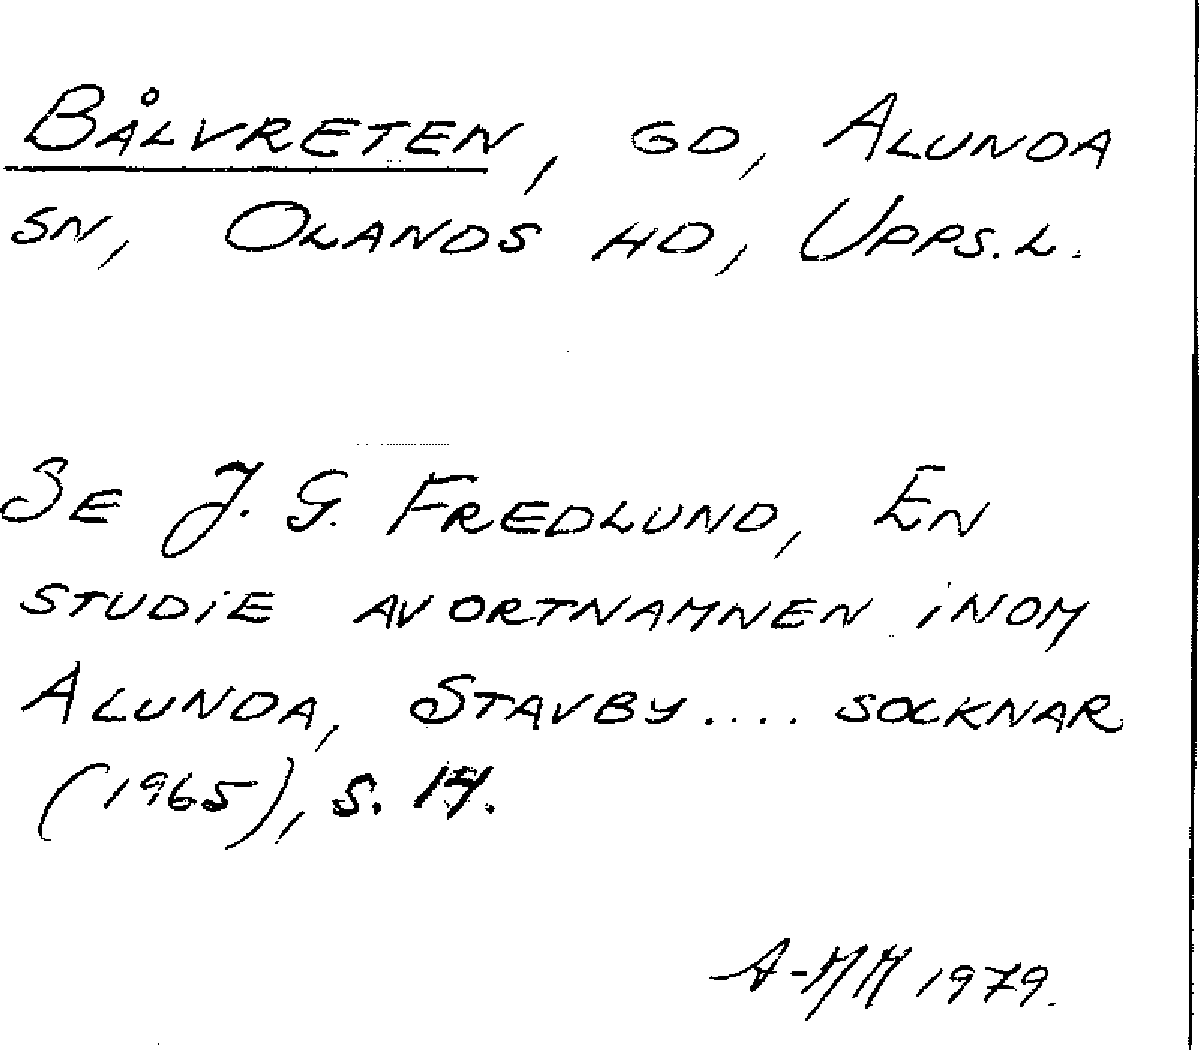 BÅLVRETEN, GD, ALUNDA
SN, OLANDS HD, UPPS.L.
SE J. G. FREDLUND, EN
STUDIE AV ORTNAMNEN INOM
ALUNDA, STAVBY.... SOCKNAR
(1965), S. 14.
A-MM 1979.